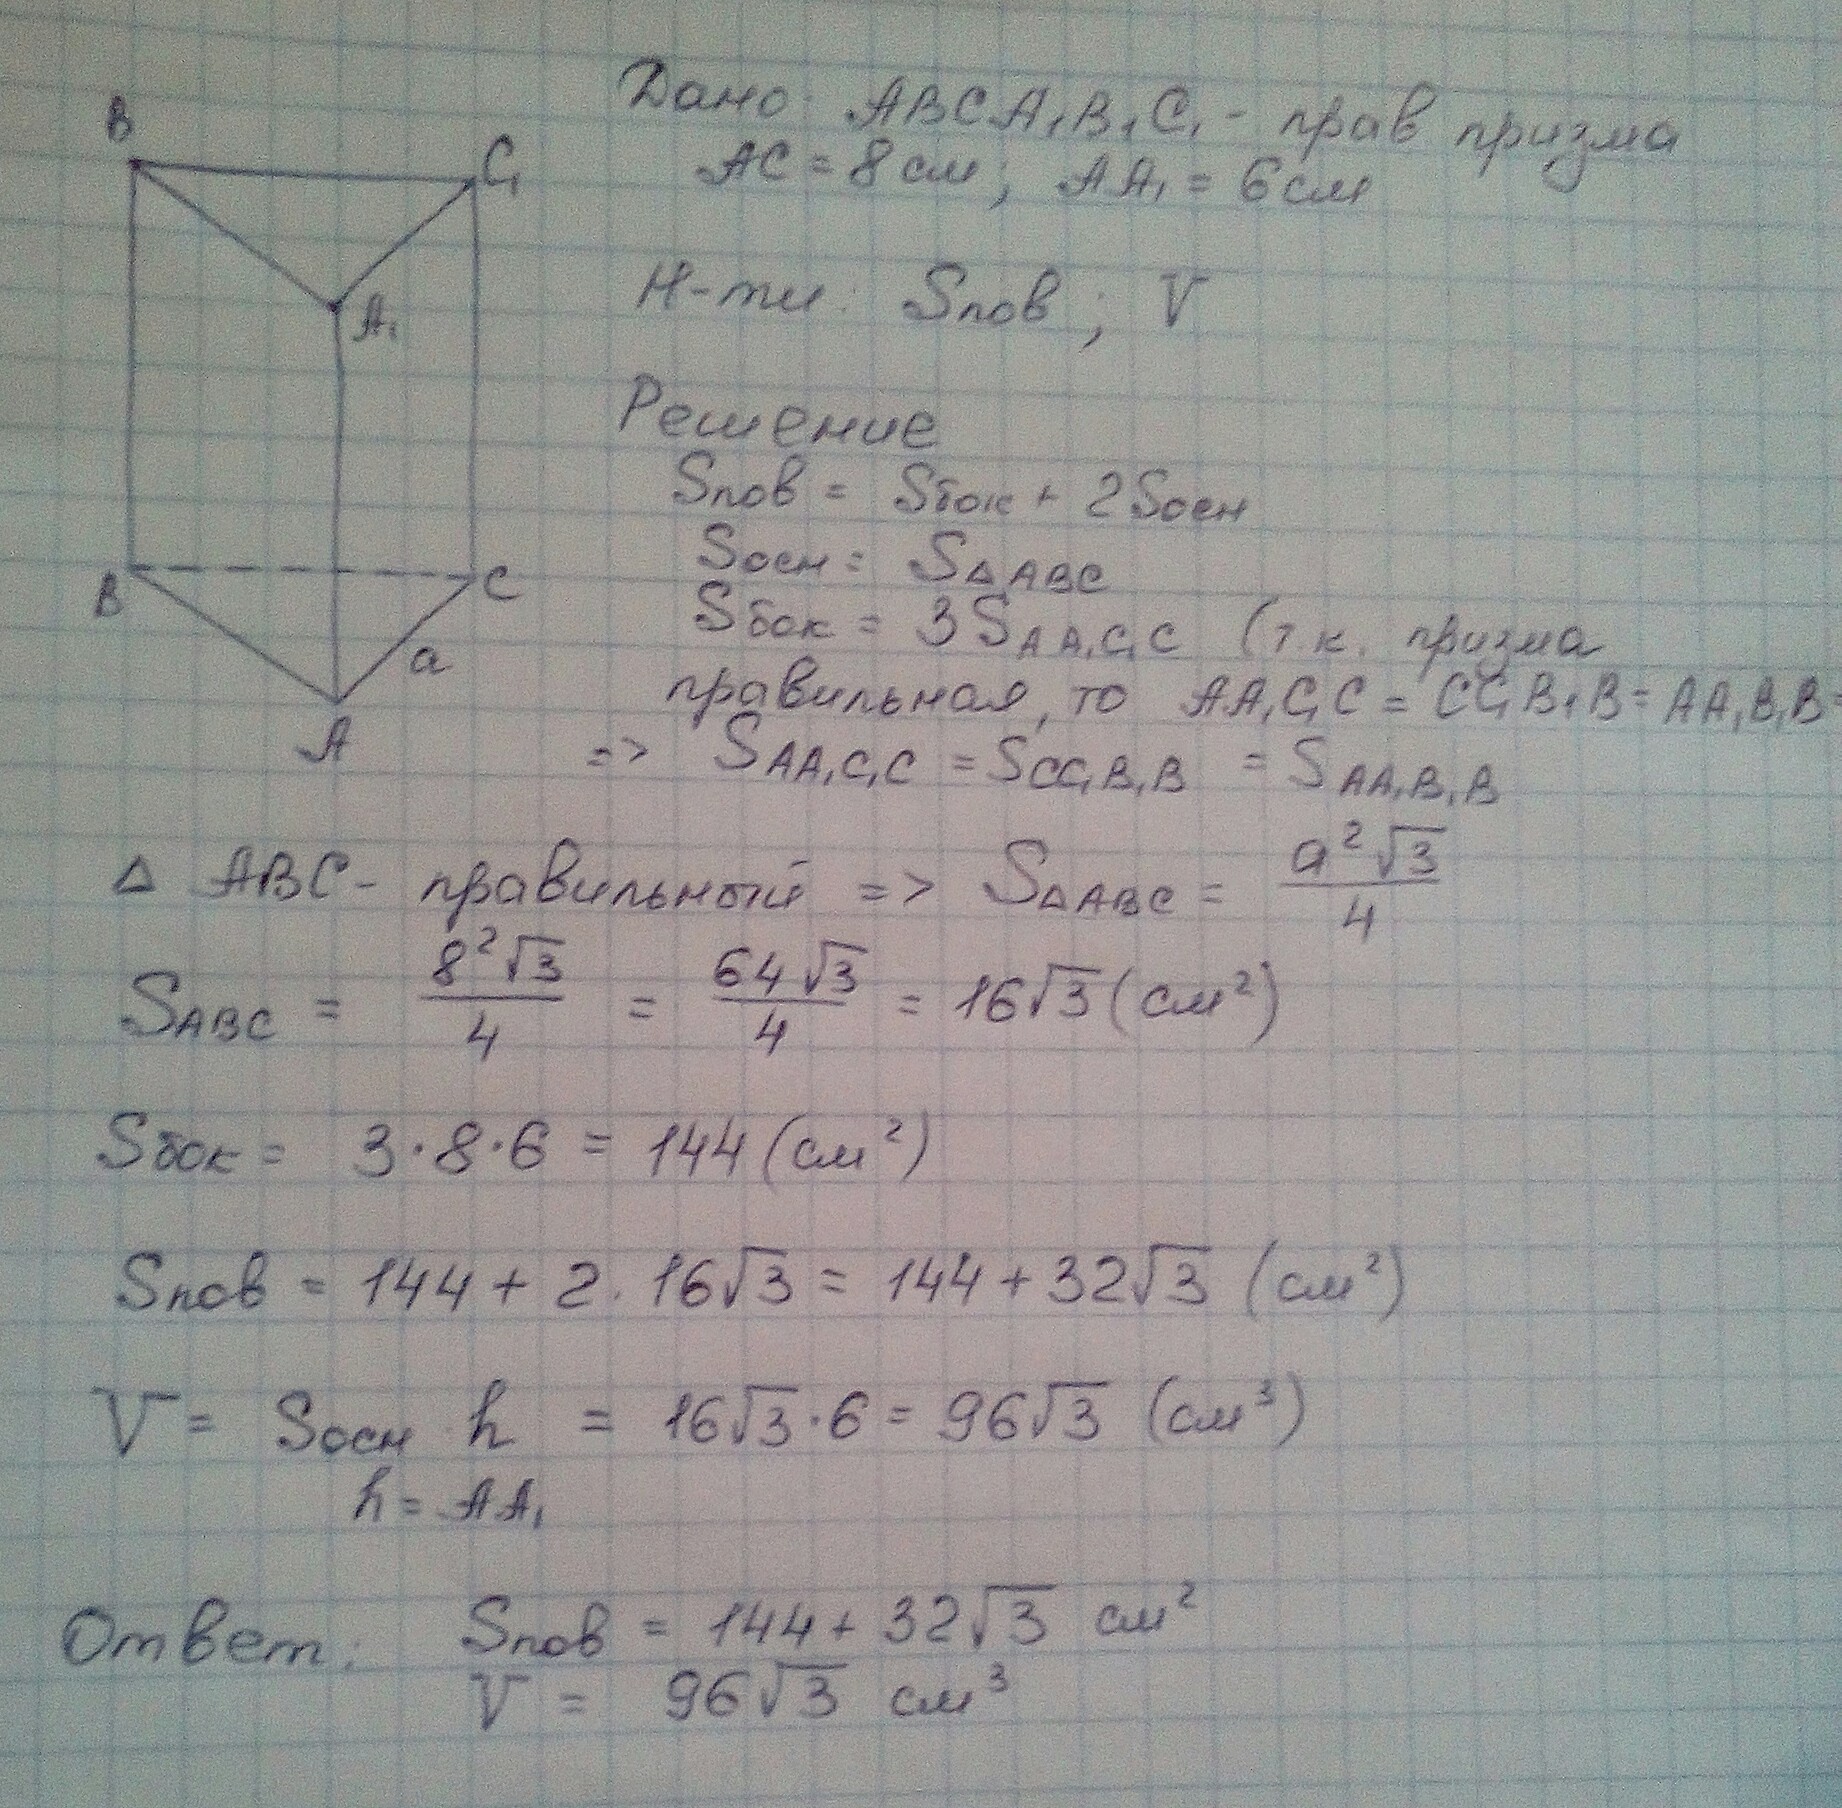 B
C₁
A₁
B
C
a
A
Дано: ABCA₁B₁C₁ - прав призма
AC = 8 см; AA₁ = 6 см
Н-ти: Sпов; V
Решение
Sпов = Sбок + 2Sосн
Sосн = S△ABC
Sбок = 3S AA₁C₁C (т.к. призма
правильная, то AA₁C₁C = CC₁B₁B = AA₁B₁B =
=> S AA₁C₁C = S CC₁B₁B = S AA₁B₁B
△ ABC - правильный => S△ABC = a²√3/4
S ABC = 8²√3/4 = 64√3/4 = 16√3 (см²)
Sбок = 3·8·6 = 144 (см²)
Sпов = 144 + 2·16√3 = 144 + 32√3 (см²)
V = Sосн h = 16√3·6 = 96√3 (см³)
h = AA₁
Ответ: Sпов = 144 + 32√3 см²
V = 96√3 см³